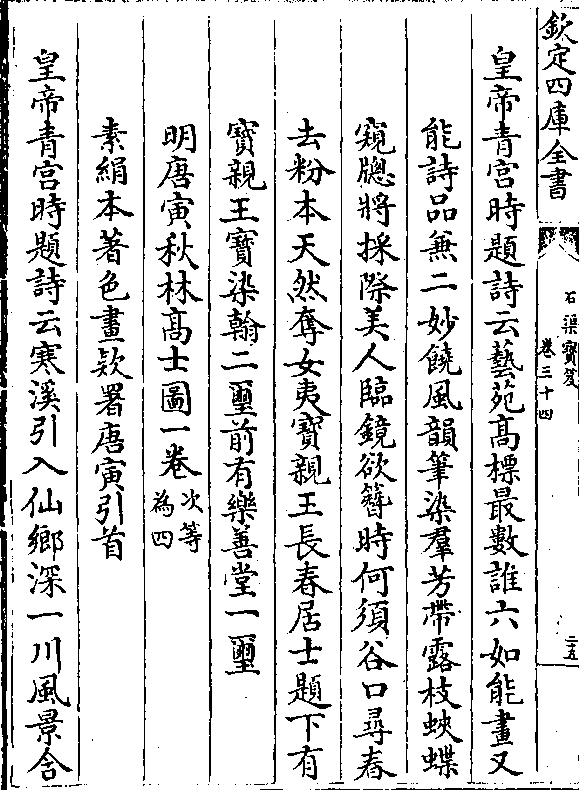 欽定四庫全書
石渠寶笈
卷三十四
二五
皇帝青宮時題詩云藝苑高標最數誰六如能畫又
能詩品兼二妙饒風韻筆染羣芳帶露枝蛺蝶
窺牕將採際美人臨鏡欲簪時何須谷口尋春
去粉本天然奪女夷寶親王長春居士題下有
寶親王寶染翰二璽前有樂善堂一璽
明唐寅秋林高士圖一卷次等為四
素絹本著色畫欵署唐寅引首
皇帝青宮時題詩云寒溪引入仙鄉深一川風景含